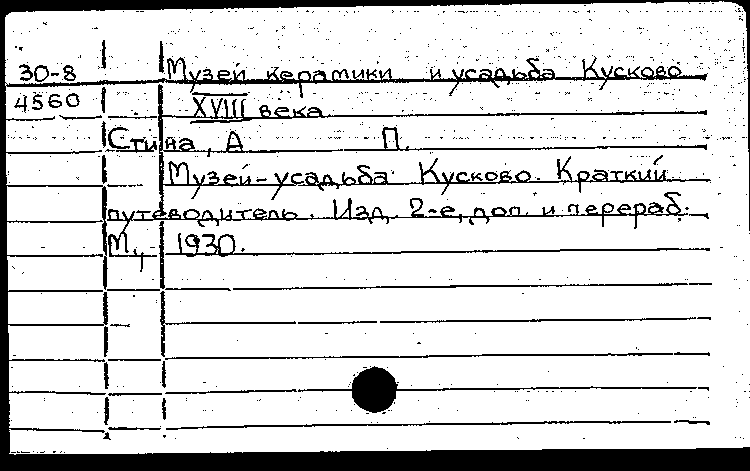 30-8 Музей керамики и усадьба Кусково
4560 XVIII века
Стина, А П.
Музей-усадьба Кусково. Краткий
путеводитель. Изд. 2-е, доп. и перераб.
М., 1930.